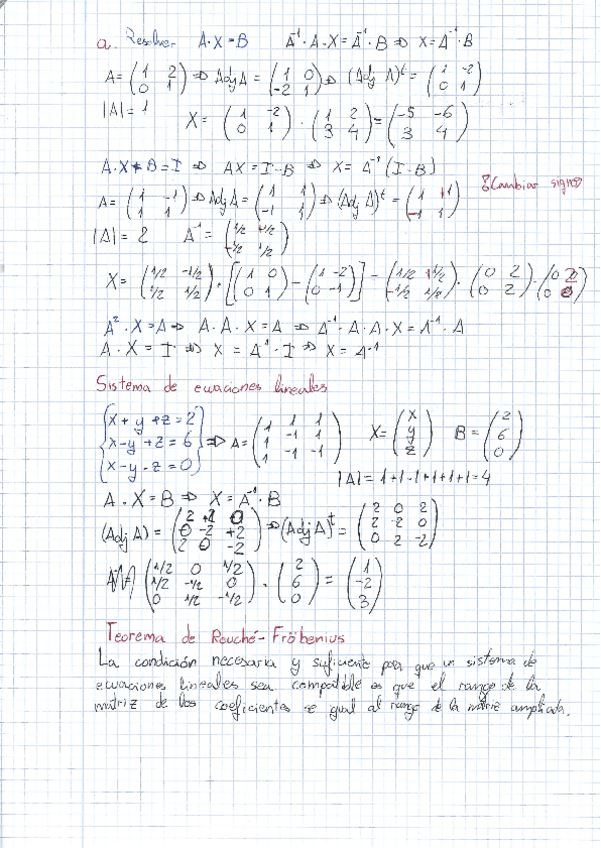 a. Resolver A·X=B A⁻¹·A·X=A⁻¹·B ⇒ X=A⁻¹·B
A=(1 2; 0 1) ⇒ Adj A=(1 0; -2 1) ⇒ (Adj A)ᵗ=(1 -2; 0 1)
|A|=1 X=(1 -2; 0 1)·(1 2; 3 4)=(-5 -6; 3 4)
A·X+B=I ⇒ AX=I-B ⇒ X=A⁻¹(I-B)
A=(1 -1; 1 1) ⇒ Adj A=(1 1; -1 1) ⇒ (Adj A)ᵗ=(1 +1; -1 1) Cambiar signo
|A|=2 A⁻¹=(1/2 +1/2; -1/2 1/2)
X=(1/2 -1/2; 1/2 1/2)·[(1 0; 0 1)-(1 -2; 0 -1)]=(1/2 +1/2; -1/2 1/2)·(0 2; 0 2)
A²·X=A ⇒ A·A·X=A ⇒ A⁻¹·A·A·X=A⁻¹·A
A·X=I ⇒ X=A⁻¹·I ⇒ X=A⁻¹
Sistema de ecuaciones lineales
{x+y+z=2; x-y+z=6; x-y-z=0} ⇒ A=(1 1 1; 1 -1 1; 1 -1 -1) X=(x; y; z) B=(2; 6; 0)
|A|=1+1-1+1+1+1=4
A·X=B ⇒ X=A⁻¹·B
(Adj A)=(2 +2 0; 0 -2 +2; 2 0 -2) ⇒ (Adj A)ᵗ=(2 0 2; 2 -2 0; 0 2 -2)
(1/2 0 1/2; 1/2 -1/2 0; 0 1/2 -1/2)·(2; 6; 0)=(1; -2; 3)
Teorema de Rouché-Fröbenius
La condición necesaria y suficiente para que un sistema de
ecuaciones lineales sea compatible es que el rango de la
matriz de los coeficientes se igual al rango de la matriz ampliada.